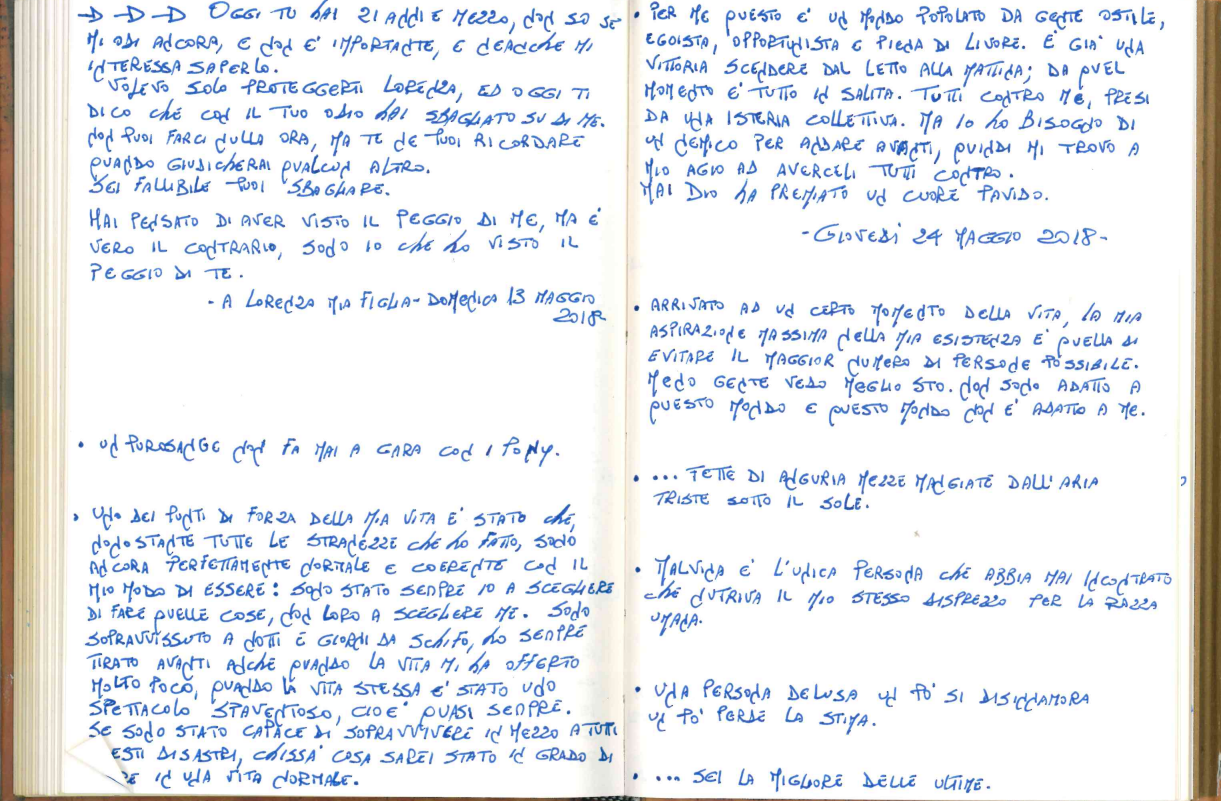 → D → D → D OGGI TU HAI 21 ANNI E MEZZO, NON SO SE
MI ODI ANCORA, E NON E' IMPORTANTE, E NEANCHE MI
INTERESSA SAPERLO.
VOLEVO SOLO PROTEGGERTI LORENZA, ED OGGI TI
DICO CHE CON IL TUO ODIO HAI SBAGLIATO SU DI ME.
NON PUOI FARCI NULLA ORA, MA TE NE PUOI RICORDARE
QUANDO GIUDICHERAI QUALCUN ALTRO.
SEI FALLIBILE PUOI SBAGLIARE.
HAI PENSATO DI AVER VISTO IL PEGGIO DI ME, MA E'
VERO IL CONTRARIO, SONO IO CHE HO VISTO IL
PEGGIO DI TE.
- A LORENZA MIA FIGLIA - DOMENICA 13 MAGGIO
2018-
• UN PUROSANGE NON FA MAI A GARA CON I PONY.
• UNO DEI PUNTI DI FORZA DELLA MIA VITA E' STATO CHE,
NONOSTANTE TUTTE LE STRANEZZE CHE HO FATTO, SONO
ANCORA PERFETTAMENTE NORMALE E COERENTE CON IL
MIO MODO DI ESSERE: SONO STATO SEMPRE IO A SCEGLIERE
DI FARE QUELLE COSE, NON LORO A SCEGLIERE ME. SONO
SOPRAVVISSUTO A NOTTI E GIORNI DA SCHIFO, HO SEMPRE
TIRATO AVANTI ANCHE QUANDO LA VITA MI HA OFFERTO
MOLTO POCO, QUANDO LA VITA STESSA E' STATO UNO
SPETTACOLO SPAVENTOSO, CIOE' QUASI SEMPRE.
SE SONO STATO CAPACE DI SOPRAVVIVERE IN MEZZO A TUTTI
ESTI DISASTRI, CHISSA' COSA SAREI STATO IN GRADO DI
RE IN UNA VITA NORMALE.
• PER ME QUESTO E' UN MONDO POPOLATO DA GENTE OSTILE,
EGOISTA, OPPORTUNISTA E PIENA DI LIVORE. E' GIA' UNA
VITTORIA SCENDERE DAL LETTO ALLA MATTINA; DA QUEL
MOMENTO E' TUTTO IN SALITA. TUTTI CONTRO ME, PRESI
DA UNA ISTERIA COLLETTIVA. MA IO HO BISOGNO DI
UN NEMICO PER ANDARE AVANTI, QUINDI MI TROVO A
MIO AGIO AD AVERCELI TUTTI CONTRO.
MAI DIO HA PREMIATO UN CUORE PAVIDO.
- GIOVEDI 24 MAGGIO 2018-
• ARRIVATO AD UN CERTO MOMENTO DELLA VITA, LA MIA
ASPIRAZIONE MASSIMA NELLA MIA ESISTENZA E' QUELLA DI
EVITARE IL MAGGIOR NUMERO DI PERSONE POSSIBILE.
MENO GENTE VEDO MEGLIO STO. NON SONO ADATTO A
QUESTO MONDO E QUESTO MONDO NON E' ADATTO A ME.
• ... FETTE DI ANGURIA MEZZE MANGIATE DALL'ARIA
TRISTE SOTTO IL SOLE.
• MALVINA E' L'UNICA PERSONA CHE ABBIA MAI INCONTRATO
CHE NUTRIVA IL MIO STESSO DISPREZZO PER LA RAZZA
UMANA.
• UNA PERSONA DELUSA UN PO' SI DISINNAMORA
UN PO' PERDE LA STIMA.
• ... SEI LA MIGLIORE DELLE ULTIME.